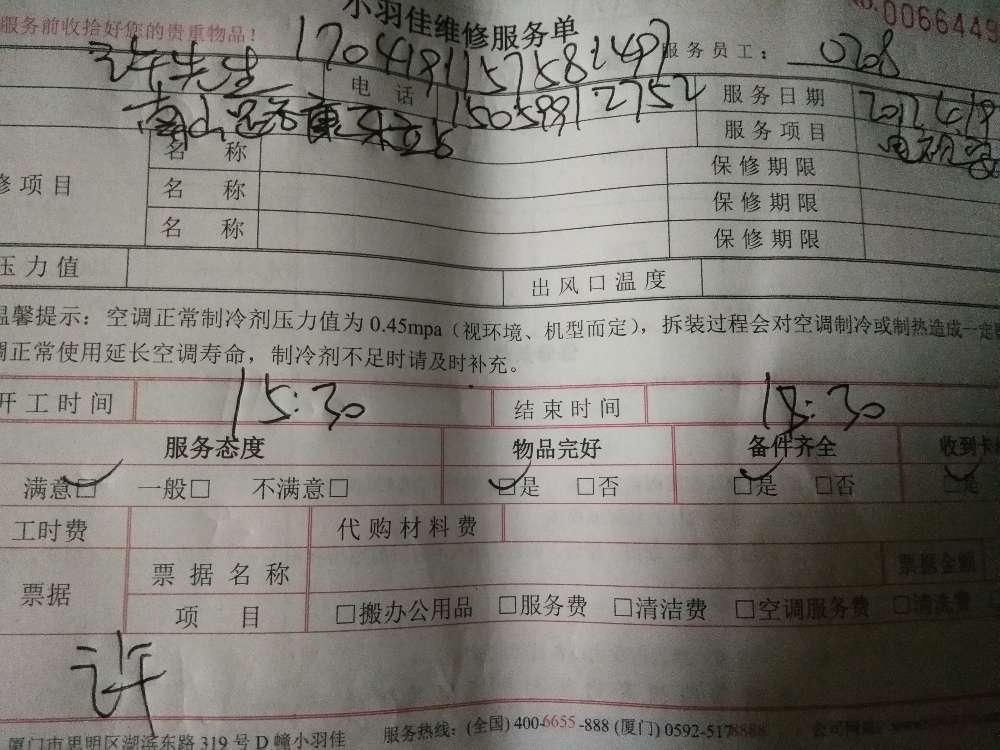 小羽佳维修服务单
No.0066449
服务前收拾好您的贵重物品！
服务员工：
许先生 电 话 服务日期
15059912752
服务项目
修项目 名 称 保修期限
名 称 保修期限
名 称 保修期限
压力值 出风口温度
温馨提示：空调正常制冷剂压力值为 0.45mpa（视环境、机型而定），拆装过程会对空调制冷或制热造成一定
调正常使用延长空调寿命，制冷剂不足时请及时补充。
开工时间 15:30 结束时间 18:30
服务态度 物品完好 备件齐全 收到卡
满意□ 一般□ 不满意□ □是 □否 □是 □否 □是
工时费 代购材料费
票据 票据名称 票据金额
项 目 □搬办公用品 □服务费 □清洁费 □空调服务费 □清洗费
许
厦门市思明区湖滨东路 319 号 D 幢小羽佳 服务热线：(全国) 400-6655-888 (厦门) 0592-5178888